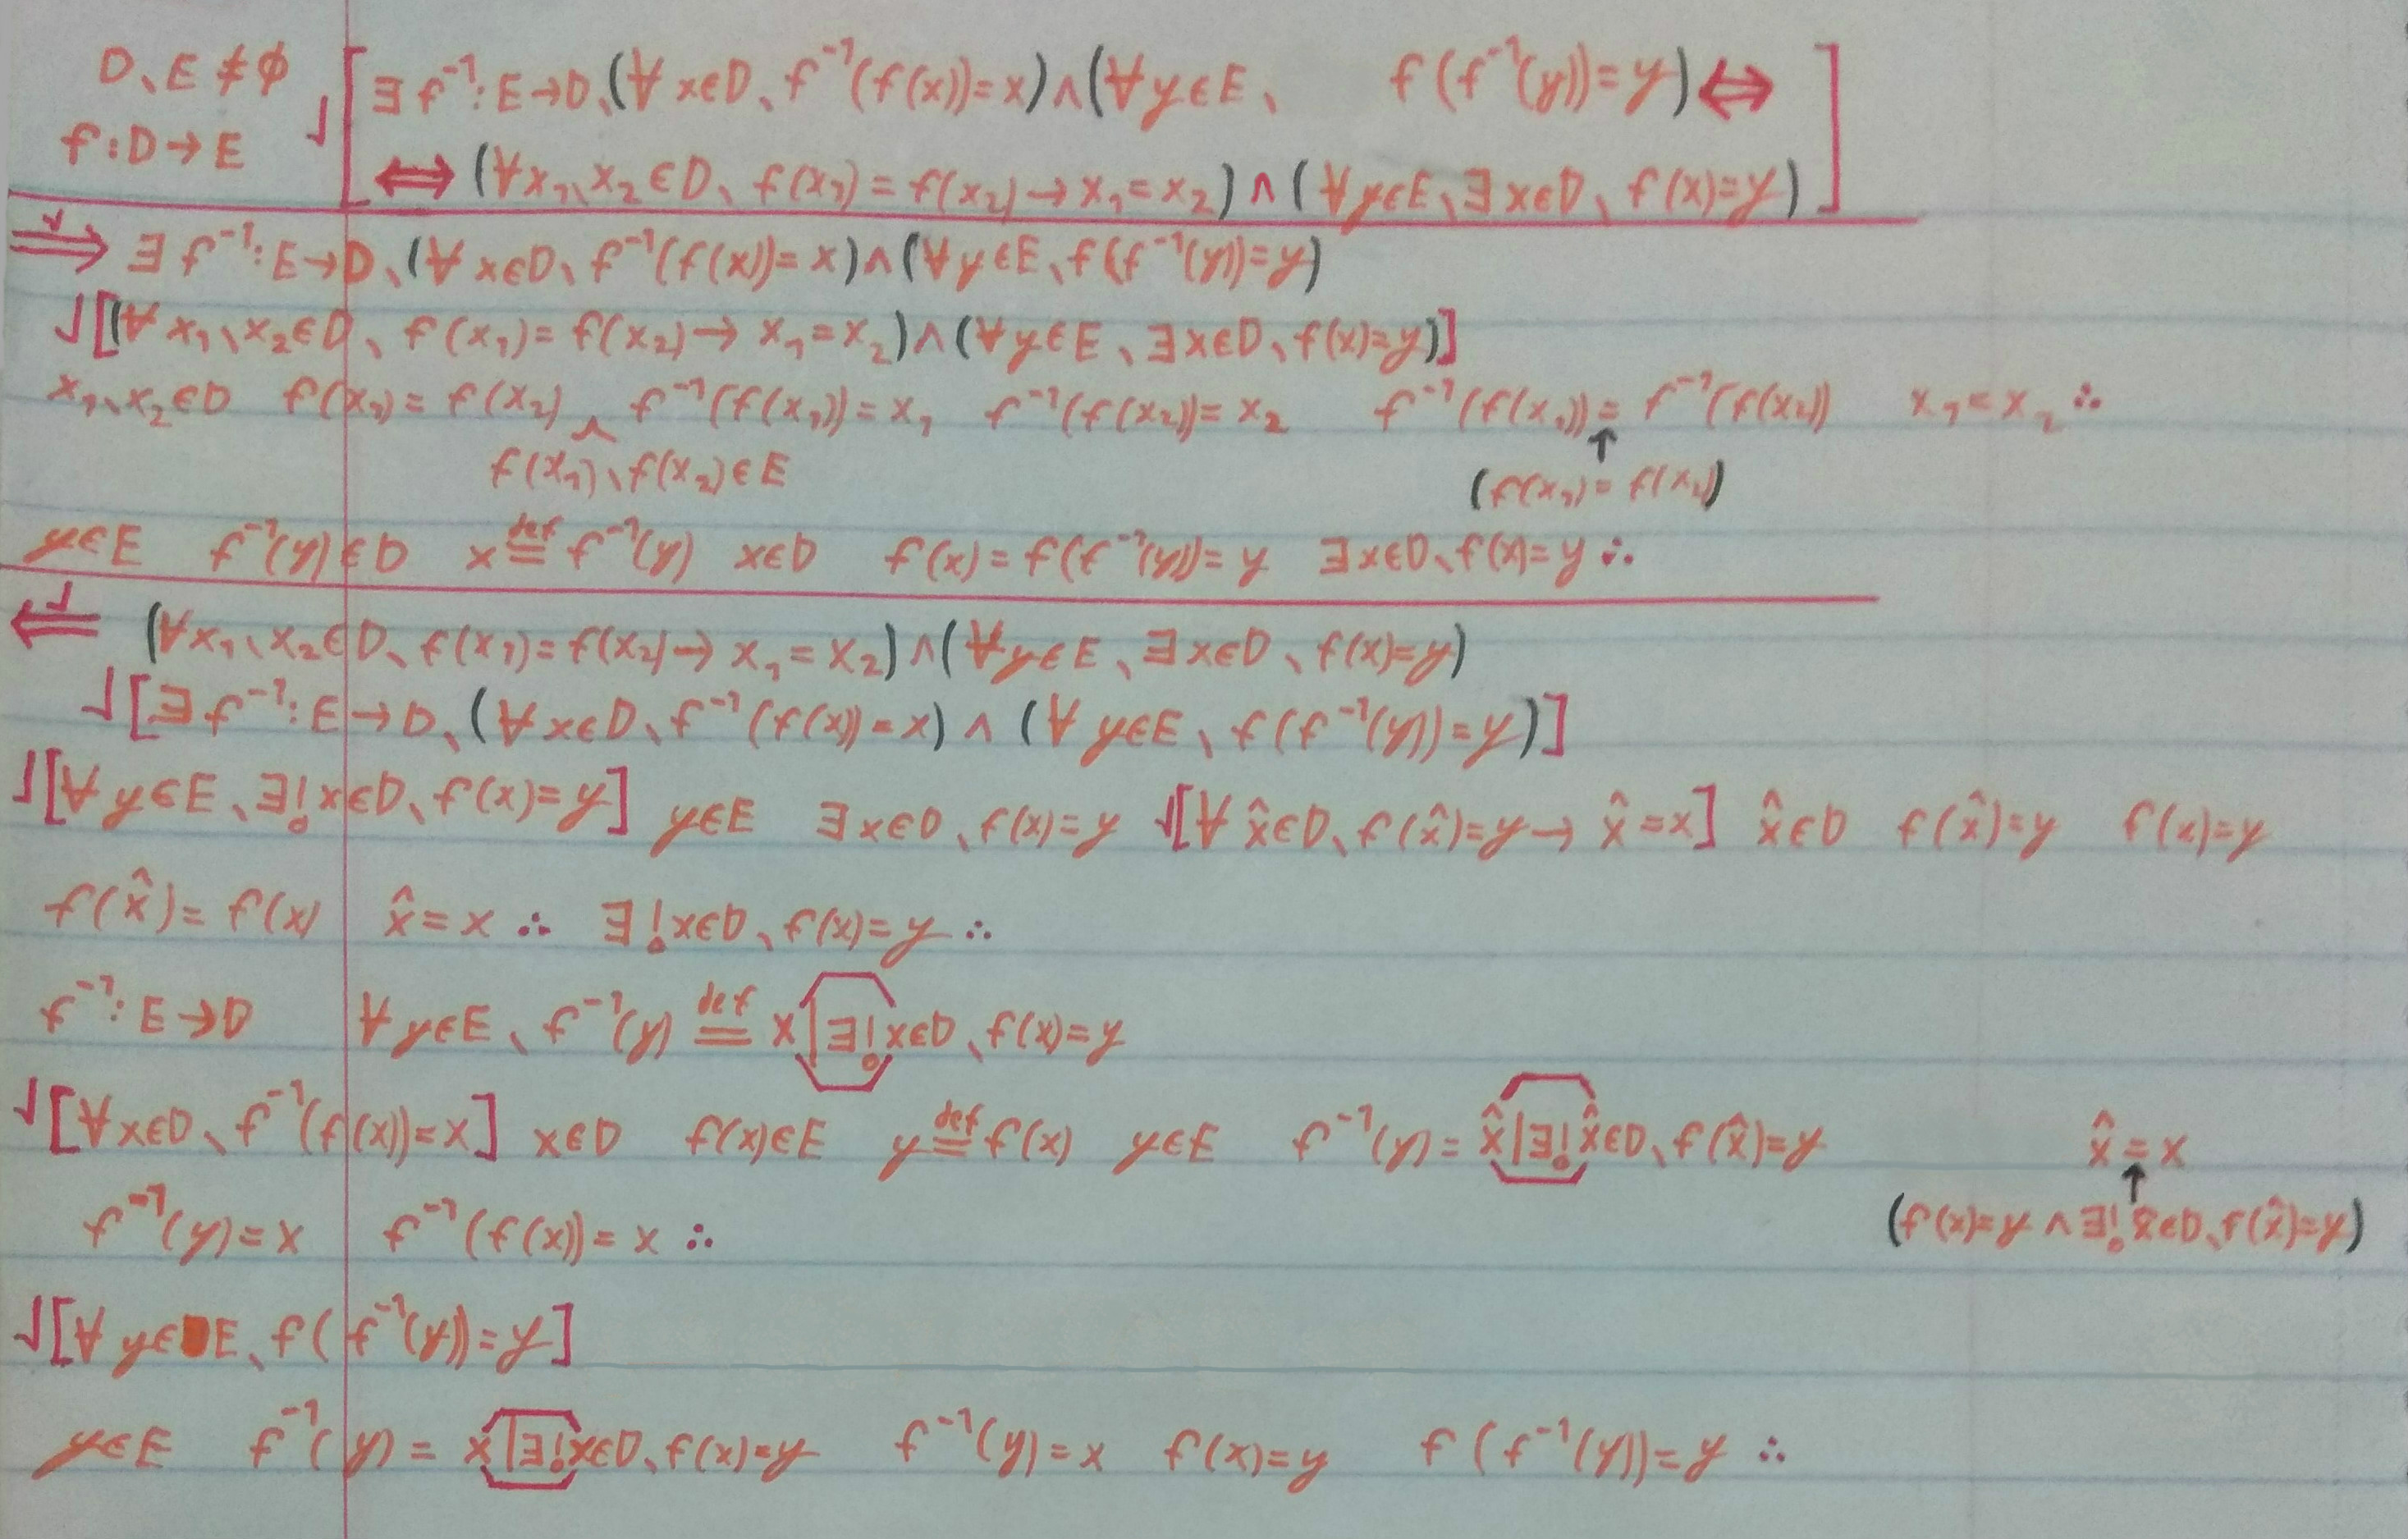 D、E≠ϕ √[∃f⁻¹:E→D、(∀x∈D、f⁻¹(f(x))=x)∧(∀y∈E、 f(f⁻¹(y))=y)⇔
f:D→E ⇔(∀x₁、x₂∈D、f(x₁)=f(x₂)→x₁=x₂)∧(∀y∈E、∃x∈D、f(x)=y)]
⟹√ ∃f⁻¹:E→D、(∀x∈D、f⁻¹(f(x))=x)∧(∀y∈E、f(f⁻¹(y))=y)
√[(∀x₁、x₂∈D、f(x₁)=f(x₂)→x₁=x₂)∧(∀y∈E、∃x∈D、f(x)=y)]
x₁、x₂∈D f(x₁)=f(x₂) f⁻¹(f(x₁))=x₁ f⁻¹(f(x₂))=x₂ f⁻¹(f(x₁))=f⁻¹(f(x₂)) x₁=x₂ ∴
^ f(x₁)、f(x₂)∈E ↑ (f(x₁)=f(x₂))
y∈E f⁻¹(y)∈D x≝f⁻¹(y) x∈D f(x)=f(f⁻¹(y))=y ∃x∈D、f(x)=y ∴
⟸√ (∀x₁、x₂∈D、f(x₁)=f(x₂)→x₁=x₂)∧(∀y∈E、∃x∈D、f(x)=y)
√[∃f⁻¹:E→D、(∀x∈D、f⁻¹(f(x))=x)∧(∀y∈E、f(f⁻¹(y))=y)]
√[∀y∈E、∃!x∈D、f(x)=y] y∈E ∃x∈D、f(x)=y √[∀x̂∈D、f(x̂)=y→x̂=x] x̂∈D f(x̂)=y f(x)=y
f(x̂)=f(x) x̂=x ∴ ∃!x∈D、f(x)=y ∴
f⁻¹:E→D ∀y∈E、f⁻¹(y)≝x|∃!x∈D、f(x)=y
√[∀x∈D、f⁻¹(f(x))=x] x∈D f(x)∈E y≝f(x) y∈E f⁻¹(y)=x̂|∃!x̂∈D、f(x̂)=y x̂=x
f⁻¹(y)=x f⁻¹(f(x))=x ∴ ↑ (f(x)=y∧∃!x̂∈D、f(x̂)=y)
√[∀y∈E、f(f⁻¹(y))=y]
y∈E f⁻¹(y)=x|∃!x∈D、f(x)=y f⁻¹(y)=x f(x)=y f(f⁻¹(y))=y ∴